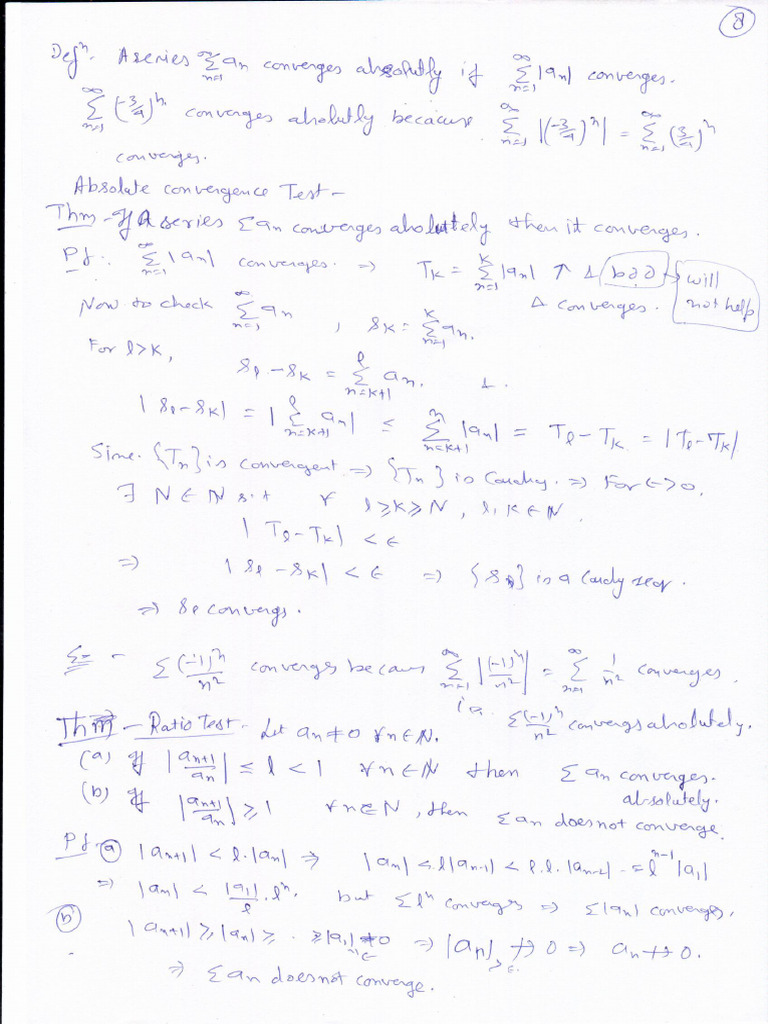 8
Defⁿ. A series ∑_{n=1}^∞ a_n converges absolutly if ∑_{n=1}^∞ |a_n| converges.
∑_{n=1}^∞ (-3/4)^n converges absolutly because ∑_{n=1}^∞ |(-3/4)^n| = ∑_{n=1}^∞ (3/4)^n
converges.
Absolute convergence Test –
Thm – If A series ∑ a_n converges absolutely then it converges.
Pf: ∑_{n=1}^∞ |a_n| converges. ⇒ T_K = ∑_{n=1}^K |a_n| ↑ & bdd → will not help
& converges.
Now to check ∑_{n=1}^∞ a_n , s_K = ∑_{n=1}^K a_n.
For l>K, s_l - s_K = ∑_{n=K+1}^l a_n. &.
|s_l - s_K| = |∑_{n=K+1}^l a_n| ≤ ∑_{n=K+1}^n |a_n| = T_l - T_K = |T_l - T_K|
Sine. {T_n} is convergent ⇒ {T_n} is Cauchy. ⇒ For ϵ>0,
∃ N ∈ ℕ s.t ∀ l ≥ K ≥ N, l, K ∈ ℕ.
|T_l - T_K| < ϵ
⇒ |s_l - s_K| < ϵ ⇒ {s_n} is a Caudy seq.
⇒ s_l convergs.
Ex – ∑ (-1)^n/n² converges becaus ∑_{n=1}^∞ |(-1)^n/n²| = ∑_{n=1}^∞ 1/n² converges,
i.e. ∑ (-1)^n/n² convergs absolutely.
Thm – Ratio Test – Let a_n ≠ 0 ∀ n ∈ ℕ.
(a) If |a_{n+1}/a_n| ≤ l < 1 ∀ n ∈ ℕ then ∑ a_n converges.
absolutely.
(b) If |a_{n+1}/a_n| ≥ 1 ∀ n ∈ ℕ, then ∑ a_n does not converge.
Pf. (a) |a_{n+1}| < l.|a_n| ⇒ |a_n| < l|a_{n-1}| < l.l.|a_{n-2}| .. = l^{n-1} |a_1|
⇒ |a_n| < |a_1|/l . l^n. but ∑ l^n converges ⇒ ∑|a_n| converges.
(b) |a_{n+1}| ≥ |a_n| ≥ .. ≥ |a_1| ≠ 0 ⇒ |a_n| ↛ 0 ⇒ a_n ↛ 0.
"ϵ ≥ ϵ
⇒ ∑ a_n does not converge.